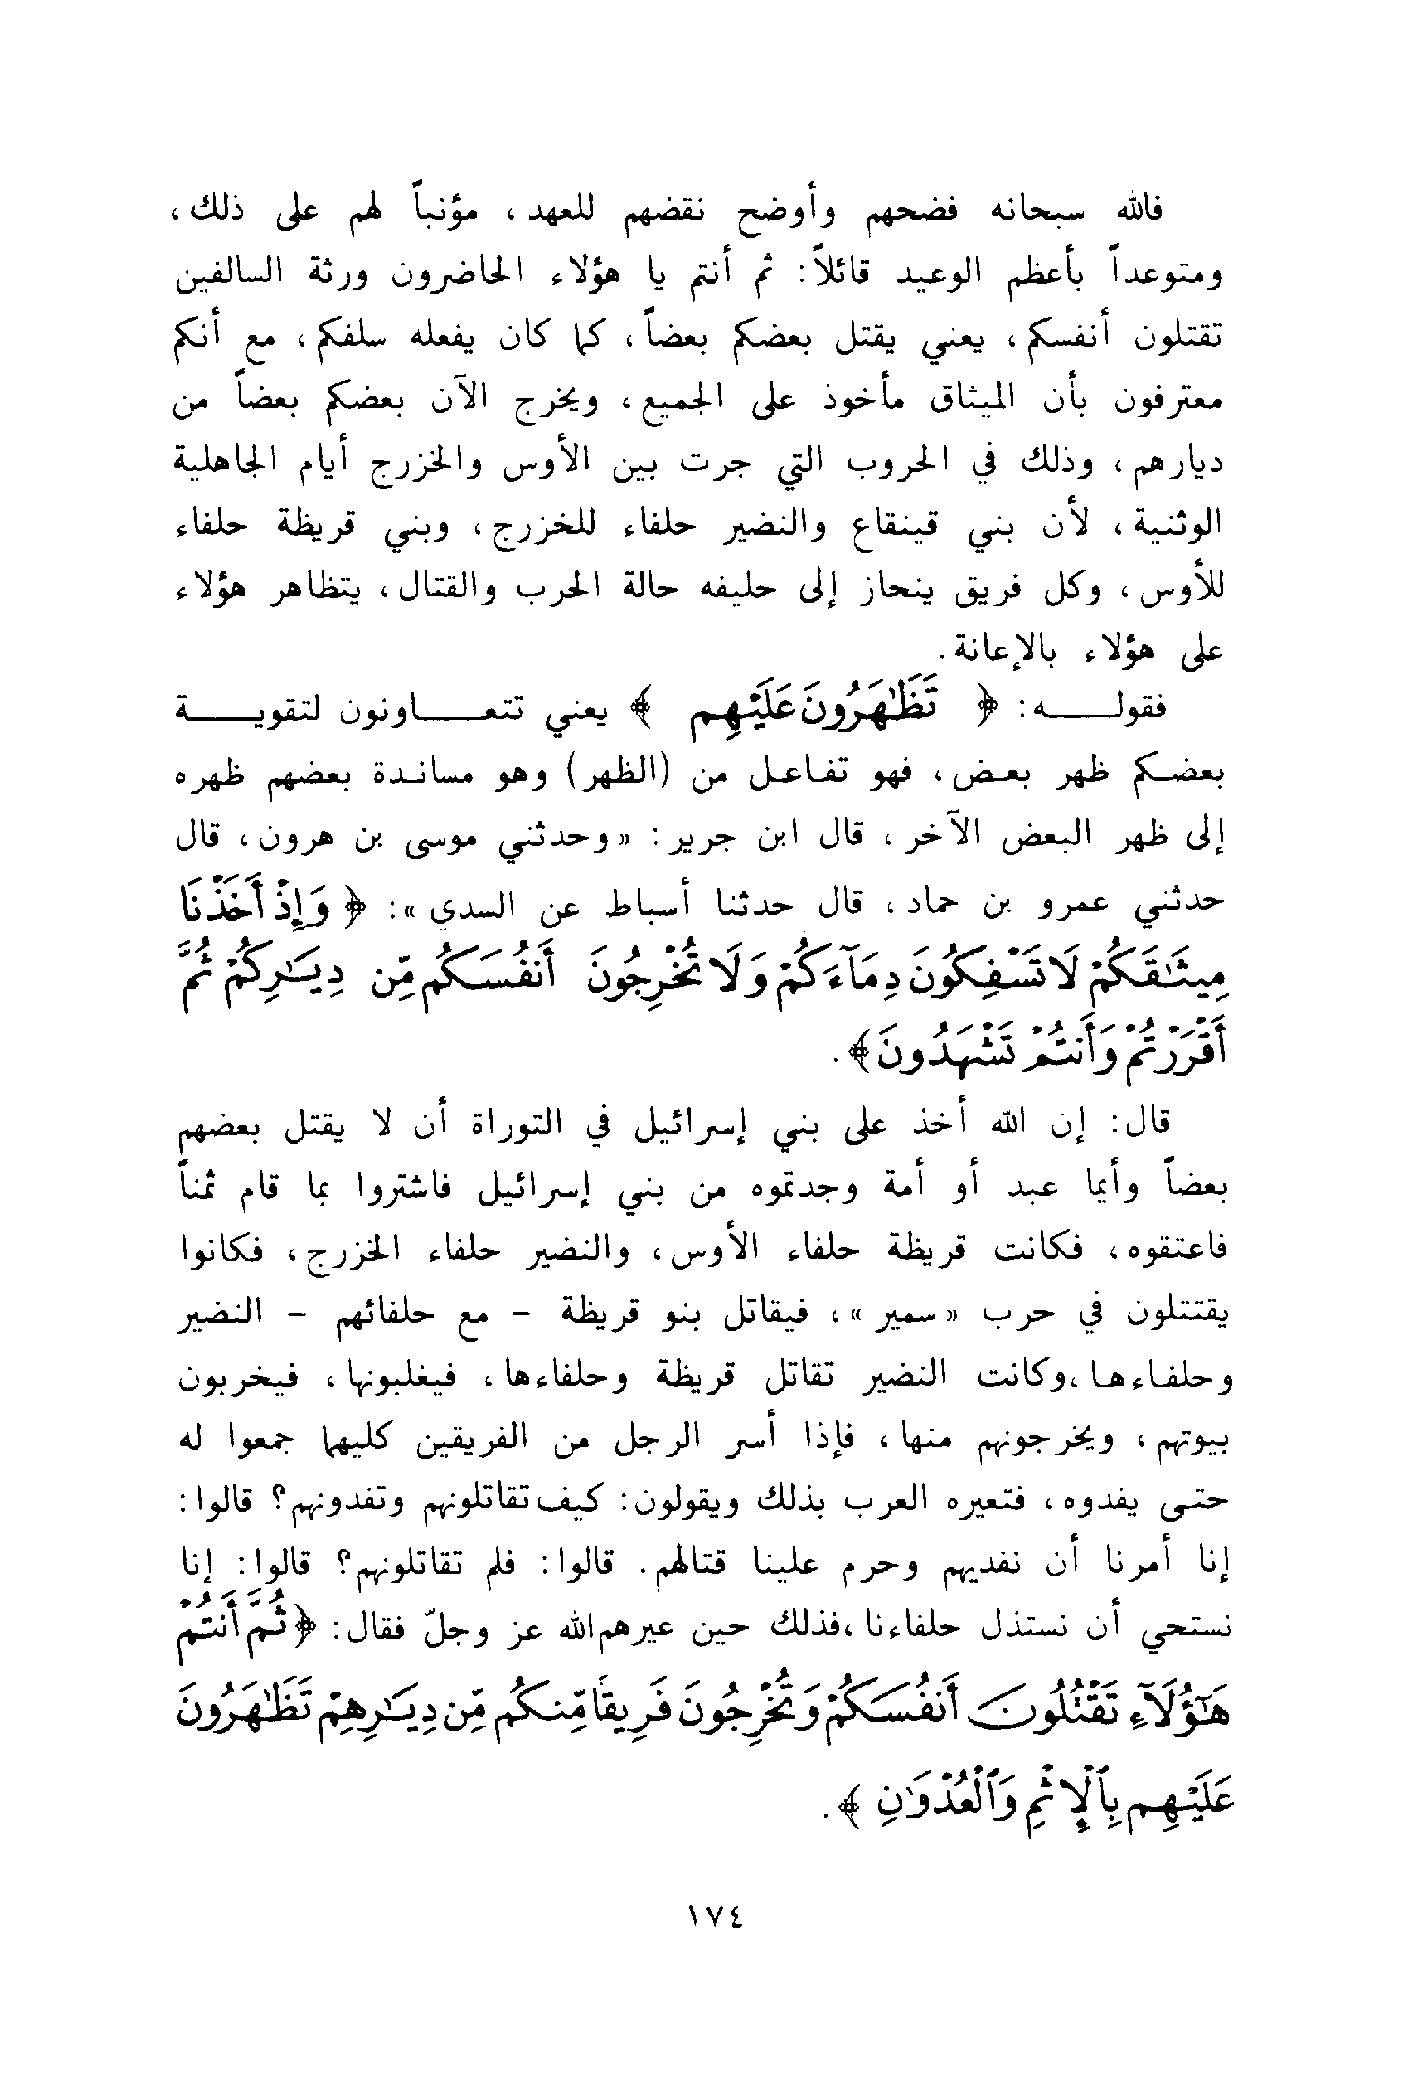 فالله سبحانه فضحهم وأوضح نقضهم للعهد، مؤنباً لهم على ذلك،
ومتوعداً بأعظم الوعيد قائلاً: ثم أنتم يا هؤلاء الحاضرون ورثة السالفين
تقتلون أنفسكم، يعني يقتل بعضكم بعضاً، كما كان يفعله سلفكم، مع أنكم
معترفون بأن الميثاق مأخوذ على الجميع، ويخرج الآن بعضكم بعضاً من
ديارهم، وذلك في الحروب التي جرت بين الأوس والخزرج أيام الجاهلية
الوثنية، لأن بني قينقاع والنضير حلفاء للخزرج، وبني قريظة حلفاء
للأوس، وكل فريق ينحاز إلى حليفه حالة الحرب والقتال، يتظاهر هؤلاء
على هؤلاء بالإعانة.
فقولـــه: ﴿ تَظَٰهَرُونَ عَلَيْهِم ﴾ يعني تتعـــاونون لتقويـــة
بعضكم ظهر بعض، فهو تفاعل من (الظهر) وهو مساندة بعضهم ظهره
إلى ظهر البعض الآخر، قال ابن جرير: «وحدثني موسى بن هرون، قال
حدثني عمرو بن حماد، قال حدثنا أسباط عن السدي»: ﴿ وَإِذْ أَخَذْنَا
مِيثَٰقَكُمْ لَا تَسْفِكُونَ دِمَآءَكُمْ وَلَا تُخْرِجُونَ أَنفُسَكُم مِّن دِيَٰرِكُمْ ثُمَّ
أَقْرَرْتُمْ وَأَنتُمْ تَشْهَدُونَ﴾.
قال: إن الله أخذ على بني إسرائيل في التوراة أن لا يقتل بعضهم
بعضاً وأيما عبد أو أمة وجدتموه من بني إسرائيل فاشتروا بما قام ثمناً
فاعتقوه، فكانت قريظة حلفاء الأوس، والنضير حلفاء الخزرج، فكانوا
يقتتلون في حرب «سمير»، فيقاتل بنو قريظة - مع حلفائهم - النضير
وحلفاءها،وكانت النضير تقاتل قريظة وحلفاءها، فيغلبونها، فيخربون
بيوتهم، ويخرجونهم منها، فإذا أسر الرجل من الفريقين كليهما جمعوا له
حتى يفدوه، فتعيره العرب بذلك ويقولون: كيف تقاتلونهم وتفدونهم؟ قالوا:
إنا أمرنا أن نفديهم وحرم علينا قتالهم. قالوا: فلم تقاتلونهم؟ قالوا: إنا
نستحي أن نستذل حلفاءنا،فذلك حين عيرهم الله عز وجلّ فقال: ﴿ثُمَّ أَنتُمْ
هَٰٓؤُلَآءِ تَقْتُلُونَ أَنفُسَكُمْ وَتُخْرِجُونَ فَرِيقًا مِّنكُم مِّن دِيَٰرِهِمْ تَظَٰهَرُونَ
عَلَيْهِم بِٱلْإِثْمِ وَٱلْعُدْوَٰنِ ﴾.
١٧٤